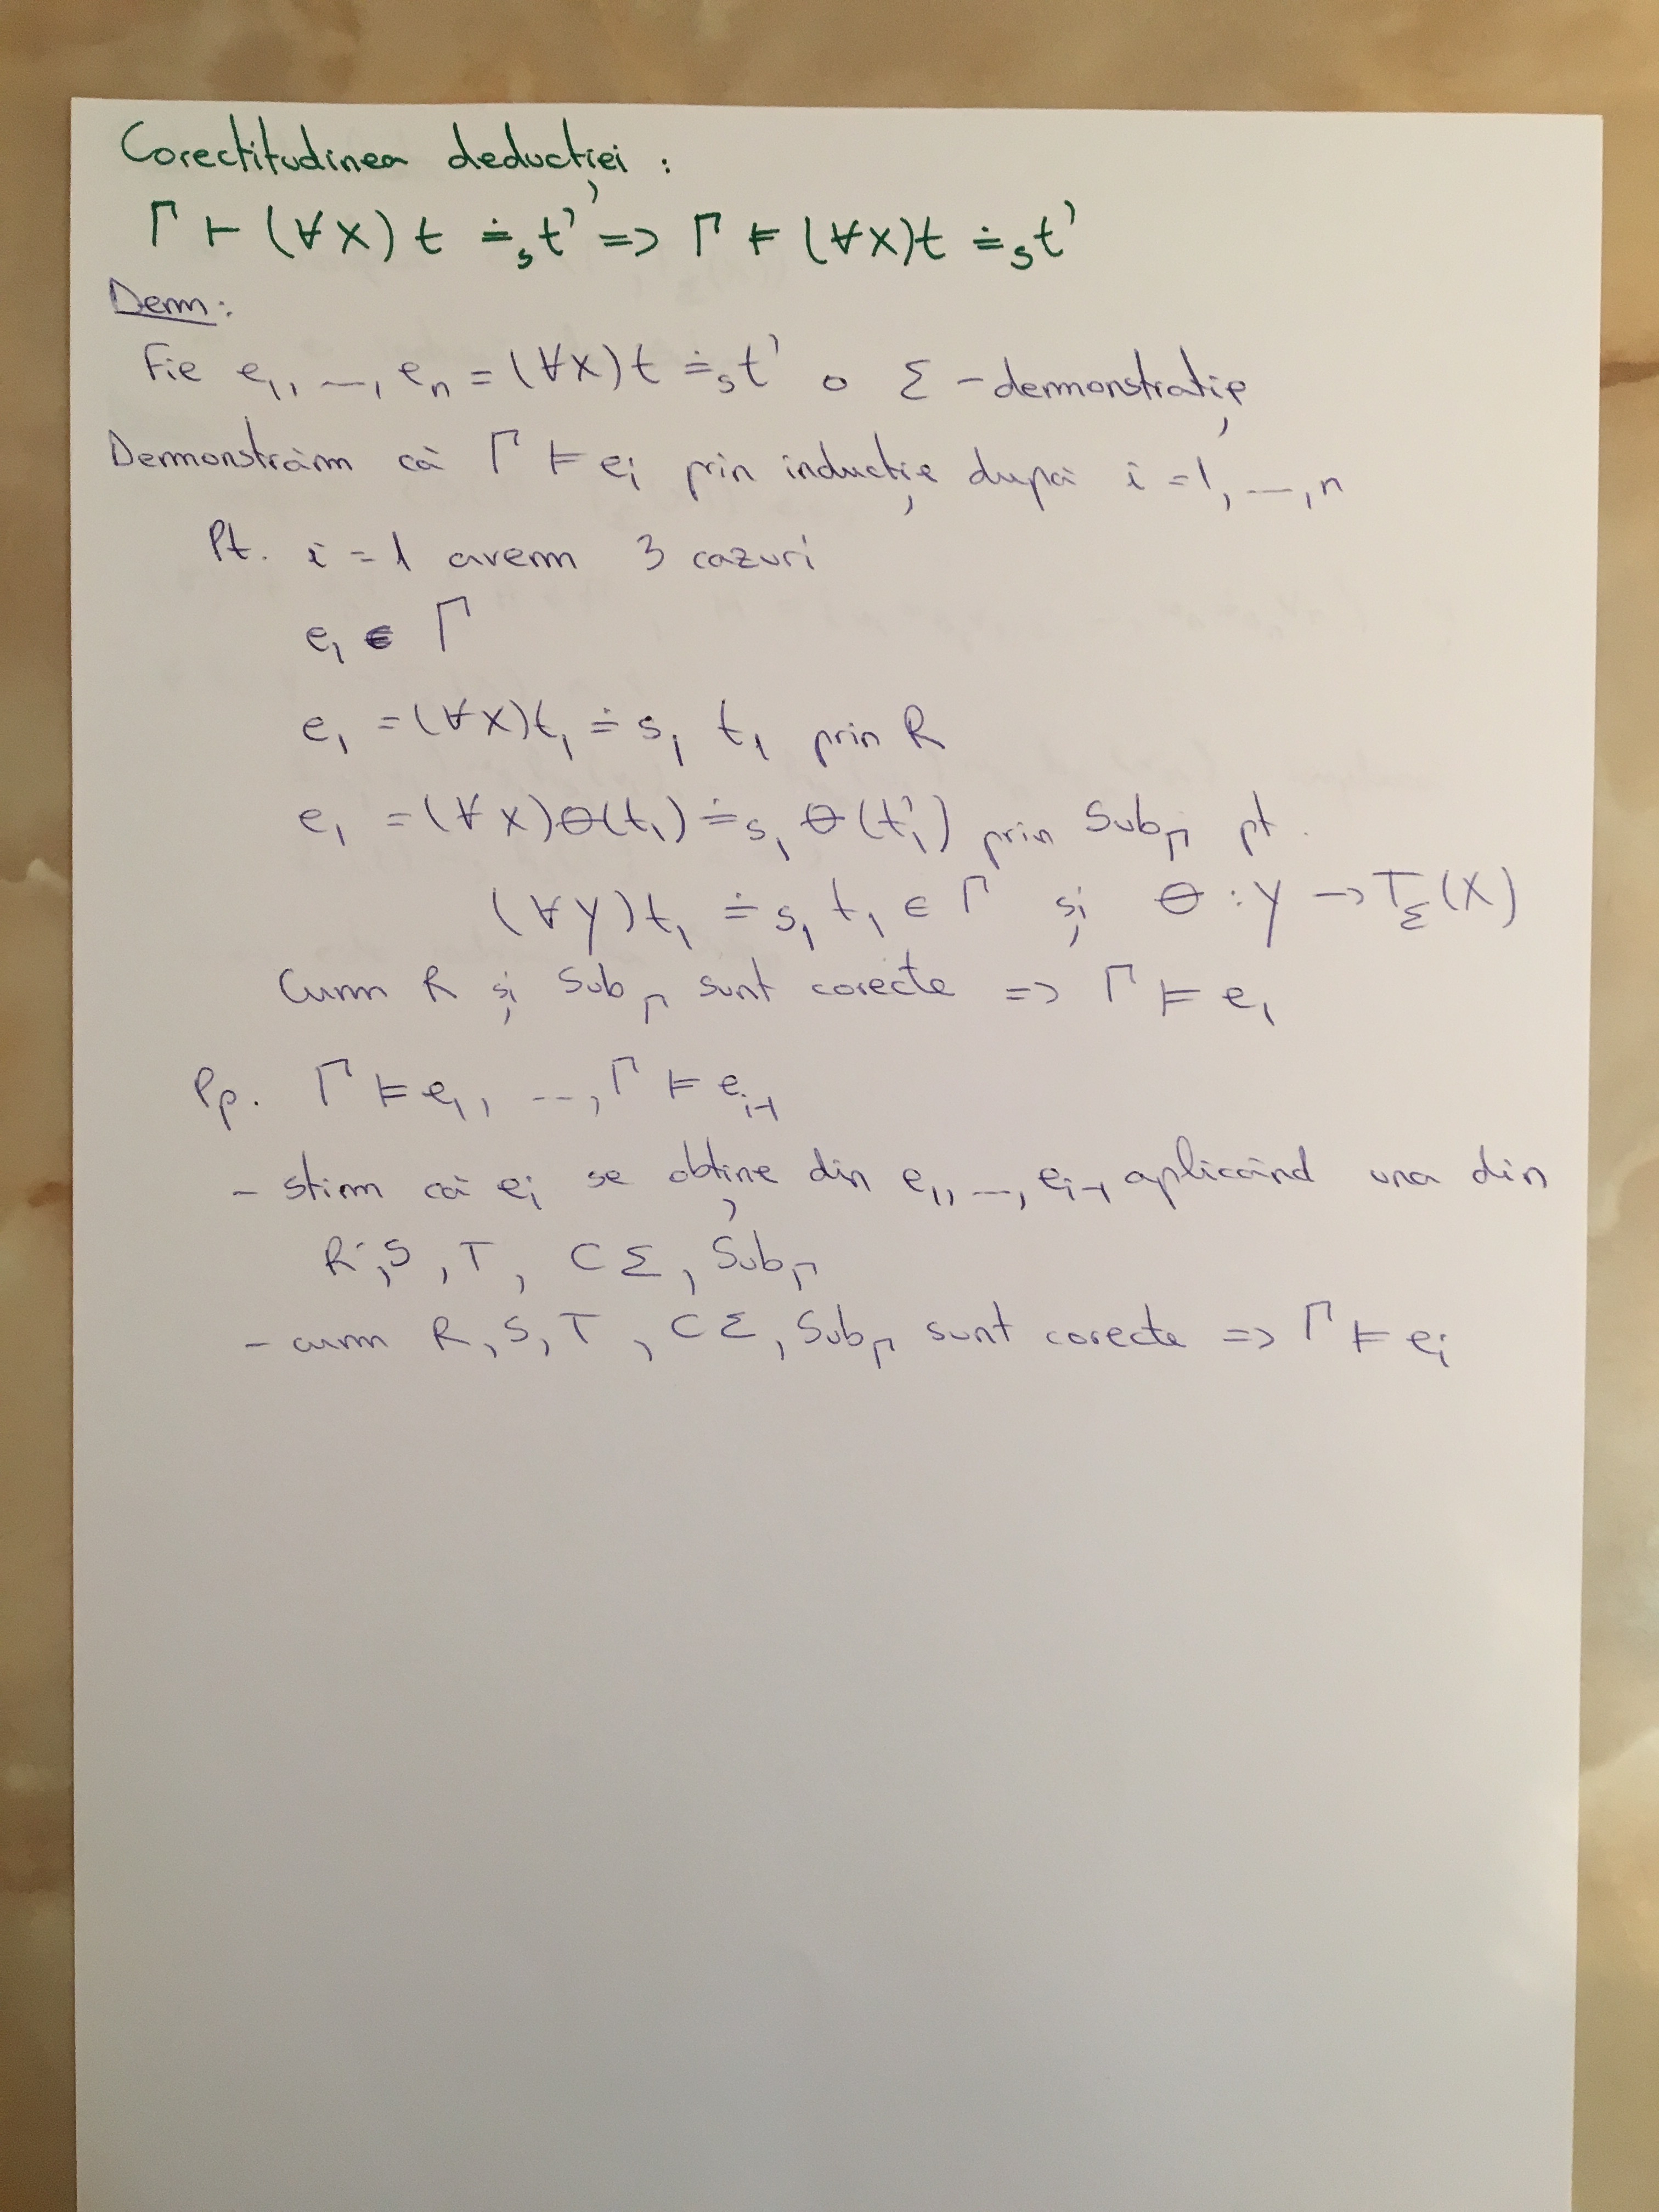 Corectitudinea deducției :
Γ ⊢ (∀X) t ≐ₛ t' => Γ ⊨ (∀X)t ≐ₛ t'
Dem:
Fie e₁, ..., eₙ = (∀X) t ≐ₛ t' o Σ - demonstrație
Demonstrăm că Γ ⊨ eᵢ prin inducție după i = 1, ..., n
Pt. i = 1 avem 3 cazuri
e₁ ∈ Γ
e₁ = (∀X)t₁ ≐ s₁ t₁ prin R
e₁ = (∀X)θ(t₁) ≐ₛ₁ θ(t₁') prin Sub_Γ pt.
(∀Y)t₁ ≐ₛ₁ t₁ ∈ Γ și θ : Y → T_Σ(X)
Cum R și Sub_Γ sunt corecte => Γ ⊨ e₁
Pp. Γ ⊨ e₁, ..., Γ ⊨ eᵢ₋₁
- stim că eᵢ se obține din e₁, ..., eᵢ₋₁ aplicând una din
R, S, T, CΣ, Sub_Γ
- cum R, S, T, CΣ, Sub_Γ sunt corecte => Γ ⊨ eᵢ